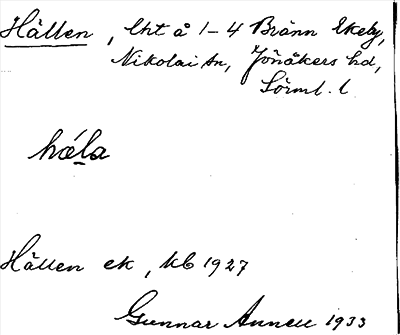 Hällen, lht å 1-4 Bränn Ekeby,
Nikolai sn, Jönåkers hd,
Sörml. l
hǽla
Hällen ek, kb 1927
Gunnar Annell 1933